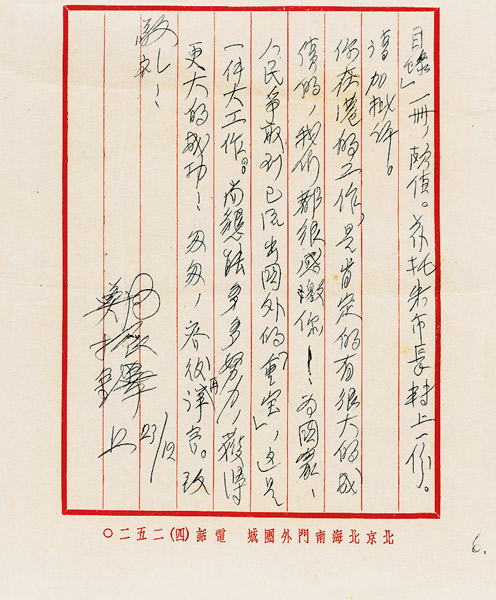 目錄」一冊，。茲托朱市長轉上一份。
請加批評。
你在港的工作，是肯定的有很大的成
績的，我們都很感激你！為國家、
人民爭取到已流出國外的「重寶」，這是
一件大工作。尚懇能多多努力，獲得
更大的成功！匆匆，容後再詳言。致
敬礼！
鄭振鐸上 27/12
北京北海南門外團城 電話(四)二五二〇
6.